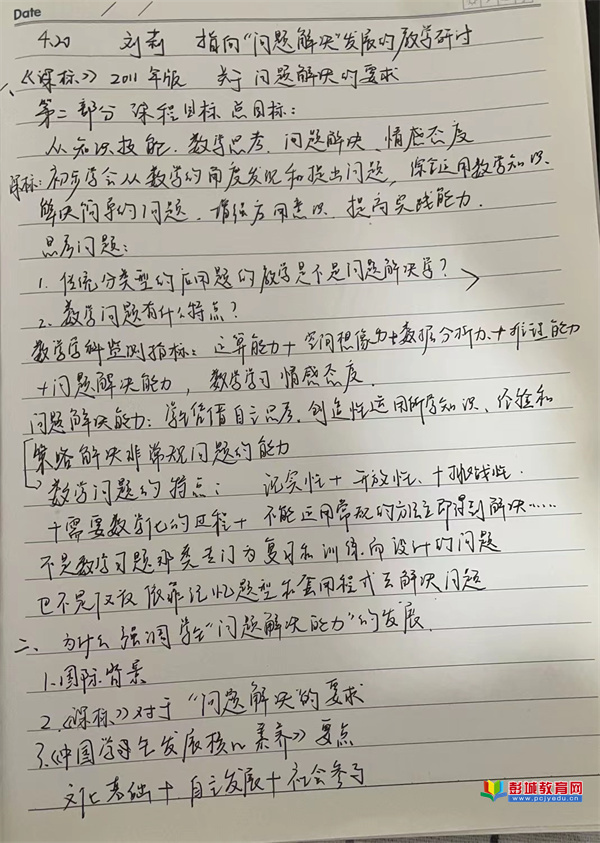 Date
4.20 刘莉 指向"问题解决"发展的教学研讨
一、《课标》2011年版 关于问题解决的要求
第二部分 课程目标 总目标:
从知识技能、数学思考、问题解决、情感态度
课标:初步学会从数学的角度发现和提出问题,综合运用数学知识、
解决简单的问题,增强应用意识,提高实践能力.
思考问题:
1. 传统分类型的应用题的教学是不是问题解决学?
2. 数学问题有什么特点?
数学学科监测指标: 运算能力+空间想像力+数据分析力+推理能力
+问题解决能力, 数学学习情感态度.
问题解决能力:学生凭借自主思考,创造性运用所学知识、经验和
策略解决非常规问题的能力
数学问题的特点: 现实性+开放性、+挑战性.
+需要数学化的过程+不能运用常规的方法立即得到解决……
不是数学习题那类专门为复习和训练而设计的问题
也不是仅仅依靠记忆题型和套用程式去解决问题
二、为什么强调学生"问题解决能力"的发展.
1.国际背景
2.《课标》对于"问题解决"的要求
3.《中国学生发展核心素养》要点
文化基础+自主发展+社会参与
彭城教育网
www.pcjyedu.cn